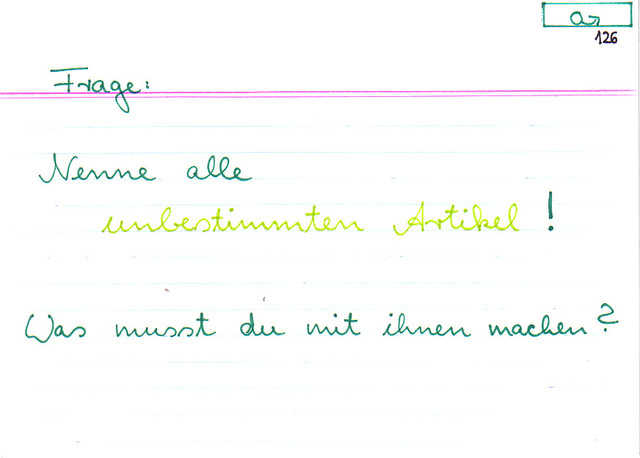 a
126
Frage:
Nenne alle
unbestimmten Artikel!
Was musst du mit ihnen machen?